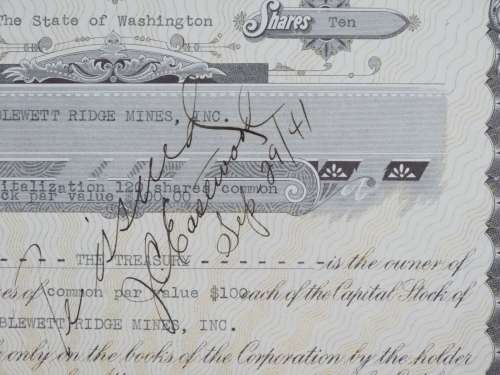 The State of Washington
Shares Ten
BLEWETT RIDGE MINES, INC.
italization 120 shares common
ck par value $100.00
re-issued
J.C. Eastwood
Sep 29/41
THE TREASURY is the owner of
es of common par value $100 each of the Capital Stock of
BLEWETT RIDGE MINES, INC.
only on the books of the Corporation by the holder